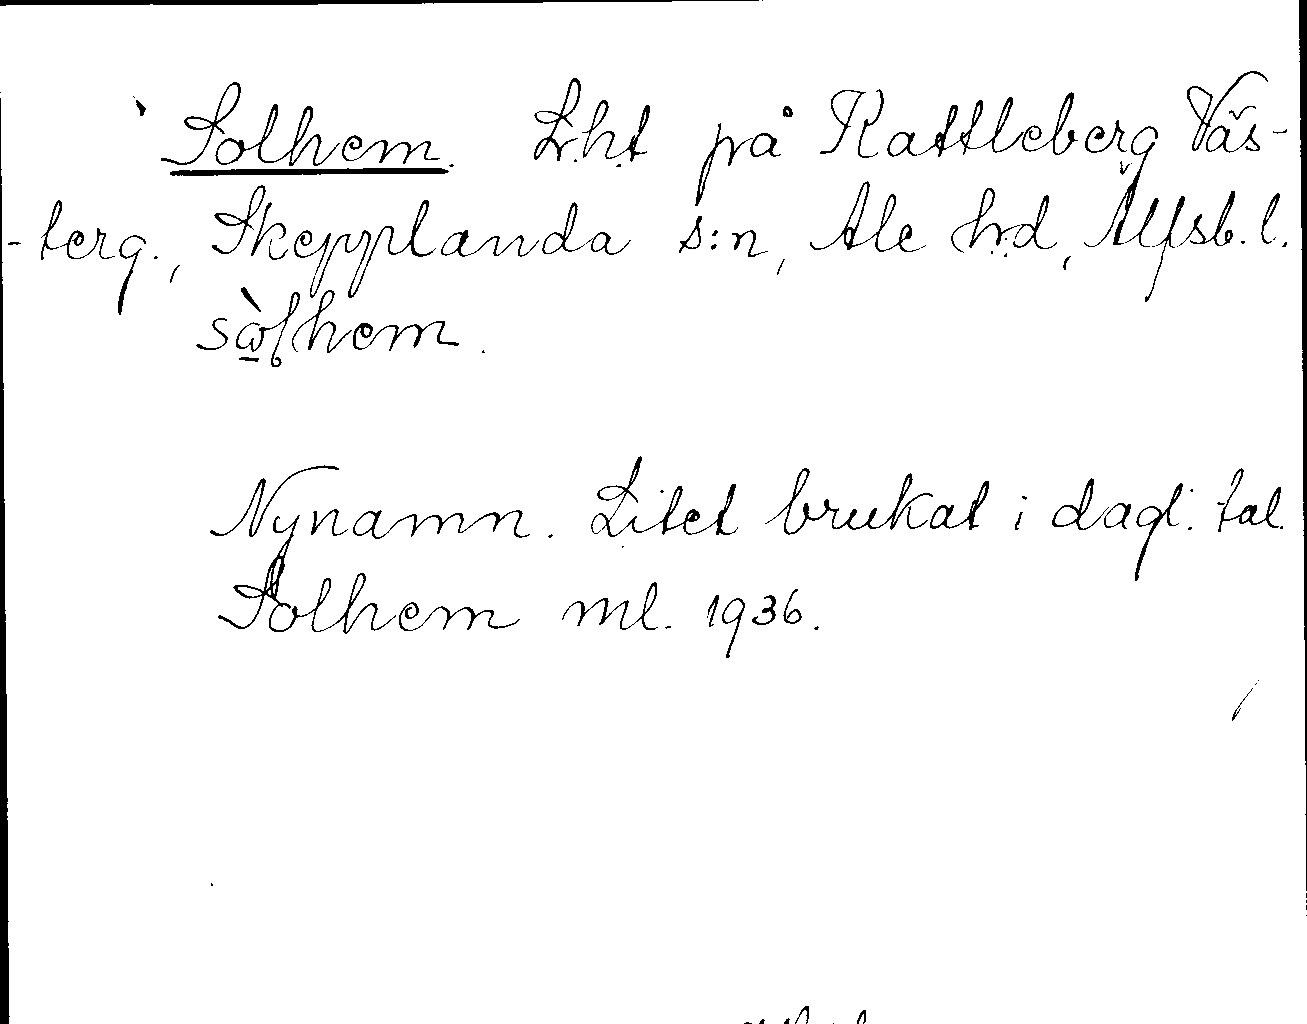 Solhem. L.h.t på Kattleberg Väs-
-terg., Skepplanda s:n, Ale h:d, Älfsb. l.
sὼlhem.
Nynamn. Litet brukat i dagl. tal.
Solhem ml. 1936.